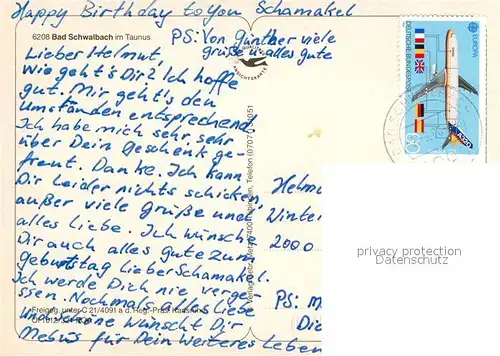 Happy Birthday to you Schamakel
6208 Bad Schwalbach im Taunus
PS: Von Günther viele
grüße + alles gute
Lieber Helmut,
Wie geht's Dir? Ich hoffe
gut. Mir geht's den
Umständen entsprechend.
Ich habe mich sehr, sehr
über Dein Geschenk ge-
freut. Danke. Ich kann
Dir leider nichts schicken,
außer viele grüße und
alles Liebe. Ich wünsch
Dir auch alles gute zum
geburtstag Lieber Schamakel.
Ich werde Dich nie verge-
ssen. Nochmals alles Liebe
und Deine wünscht Dir
Mebus für Dein weiteres Leben
Freigeg. unter C 21/4091 a. d. Reg.-Präs.
Telefon
Helmu
Winter
2000
PS: m
Die
EUROPA
DEUTSCHE BUNDESPOST
80
privacy protection
Datenschutz